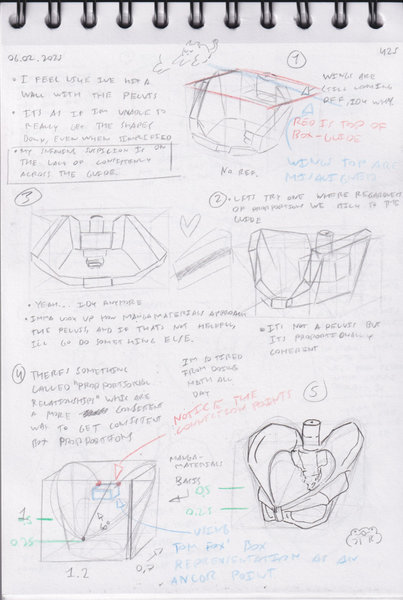 06.02.2025
425
• I FEEL LIKE I'VE HIT A
WALL WITH THE PELVIS
• IT'S AS IF I'M UNABLE TO
REALLY GET THE SHAPES
DOWN, EVEN WHEN SIMPLIFIED
• MY SUSPICION IS ON
THE LACK OF CONSISTENCY
ACROSS THE GUIDE.
1
WINGS ARE
STILL LOOKING
OFF, IDK WHY
RED IS TOP OF
BOX-GUIDE
WINGS TOP ARE
MISALIGNED
NO REF.
3
2
• LETS TRY ONE WHERE REGARDLESS
OF PROPORTION WE STICK TO THE
GUIDE
• YEAH... IDK ANYMORE
• IMMA LOOK UP HOW MANGAMATERIALS APPROACH
THE PELVIS, AND IF THAT'S NOT HELPFUL,
I'LL GO DO SOMETHING ELSE.
• IT'S NOT A PELVIS BUT
IT'S PROPORTIONALLY
COHERENT
4
THERE'S SOMETHING
CALLED "PROPORTIONAL
RELATIONSHIPS" WHICH ARE
A MORE CONSISTENT
WAY TO GET CONSISTENT
BOX PROPORTION
I'M SO TIRED
FROM DOING
MATH ALL
DAY
5
NOTICE THE
CONNECTION POINTS
MANGA-
MATERIALS
BASIS
0,5
0.25
1
0.5
0.25
60°
1.2
0,7
USING
TOM FOX' BOX
REPRESENTATION AS AN
ANCOR POINT